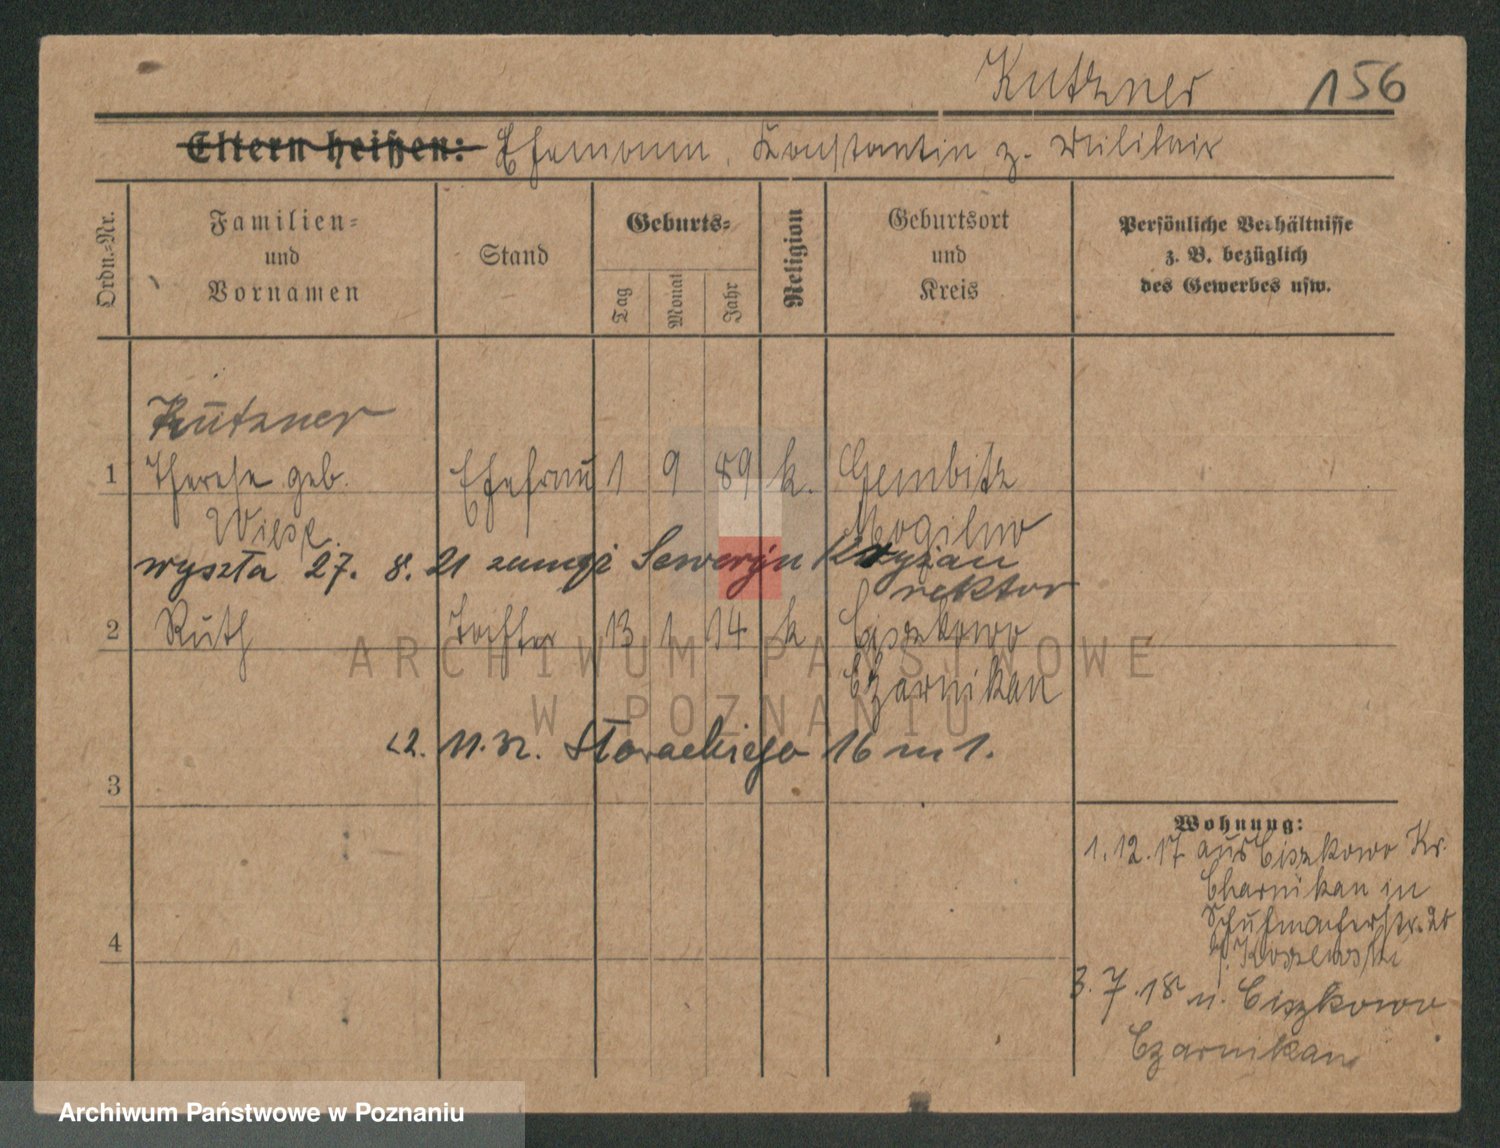 Kutzner 156
Eltern heißen: Ehemann, Konstantin z. Militair
Ordn.-Nr.
Familien-
und
Vornamen
Stand
Geburts-
Tag
Monat
Jahr
Religion
Geburtsort
und
Kreis
Persönliche Verhältnisse
z. B. bezüglich
des Gewerbes usw.
Kutzner
1 Therese geb. Ehefrau 1 9 89 k. Gembitz
Mogilno
wyszła 27. 8. 21 zamąż Seweryn
rektor
2 Ruth Tochter 13 1 14 k Ciszkowo
Czarnikau
11. 32. 16 m 1.
3
4
Wohnung:
1. 12. 17 aus Ciszkowo Kr.
Czarnikau in
Schuhmacherstr.
3. 7. 18 n. Ciszkowo
Czarnikau
ARCHIWUM PAŃSTWOWE
W POZNANIU
Archiwum Państwowe w Poznaniu